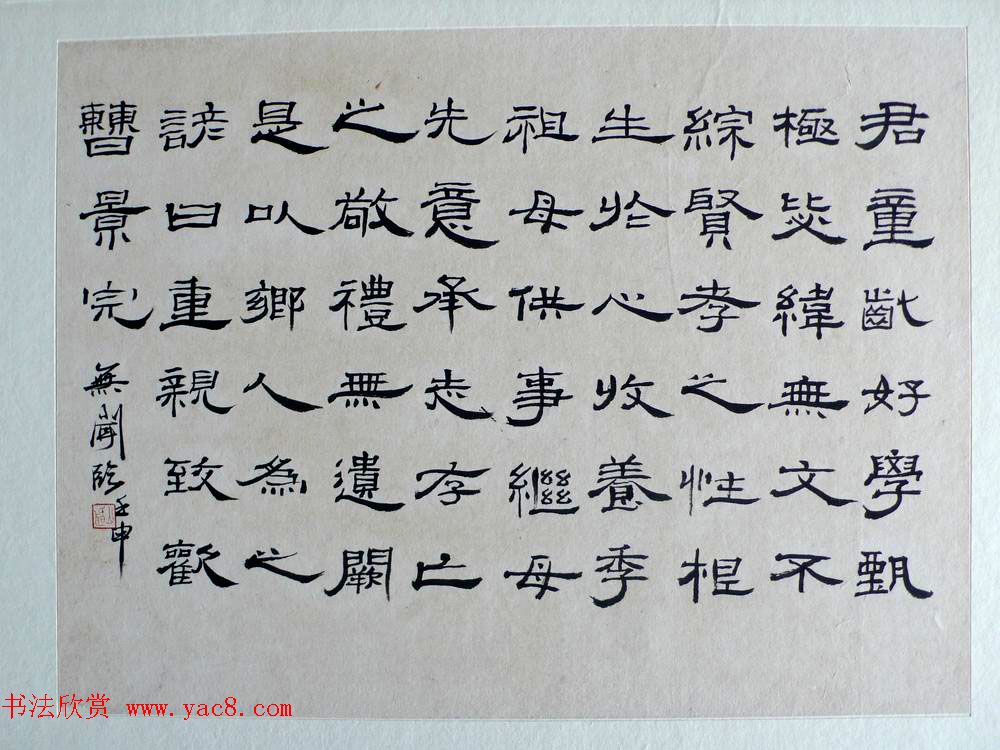 君童齔好學甄
極毖緯無文不
綜賢孝之性根
生於心收養季
祖母供事繼母
先意承志存亡
之敬禮無遺闕
是以鄉人為之
諺曰重親致歡
曹景完
無聞臨壬申
书法欣赏 www.yac8.com